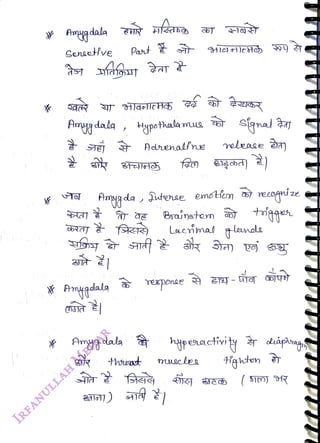 * Amygdala हमारे मस्तिष्क का सबसे
Sensetive Part है जो भावनात्मक रूप से
तेज प्रतिक्रिया देता है
* खतरे या भावनात्मक दर्द को देखकर
Amygdala , Hypothalamus को signal देता
है जहाँ से Adrenaline release होता
है और अचानक दिल धड़कता है|
* जब Amygda , Intense emotion को recognize
करता है तो वह Brainstem को trigger
करता है जिससे Lacrimal glands
सक्रिय हो जाती है और रोना एवं आंसू
आते है|
* Amygdala के response से हाथ - पाँव कांपने
लगते है|
* Amygdala की hyperactivity से diaphragm
और throat muscles tighten हो
जाते है जिससे साँस अटक ( गला भर
आना ) जाती है|
IRFANULLAH